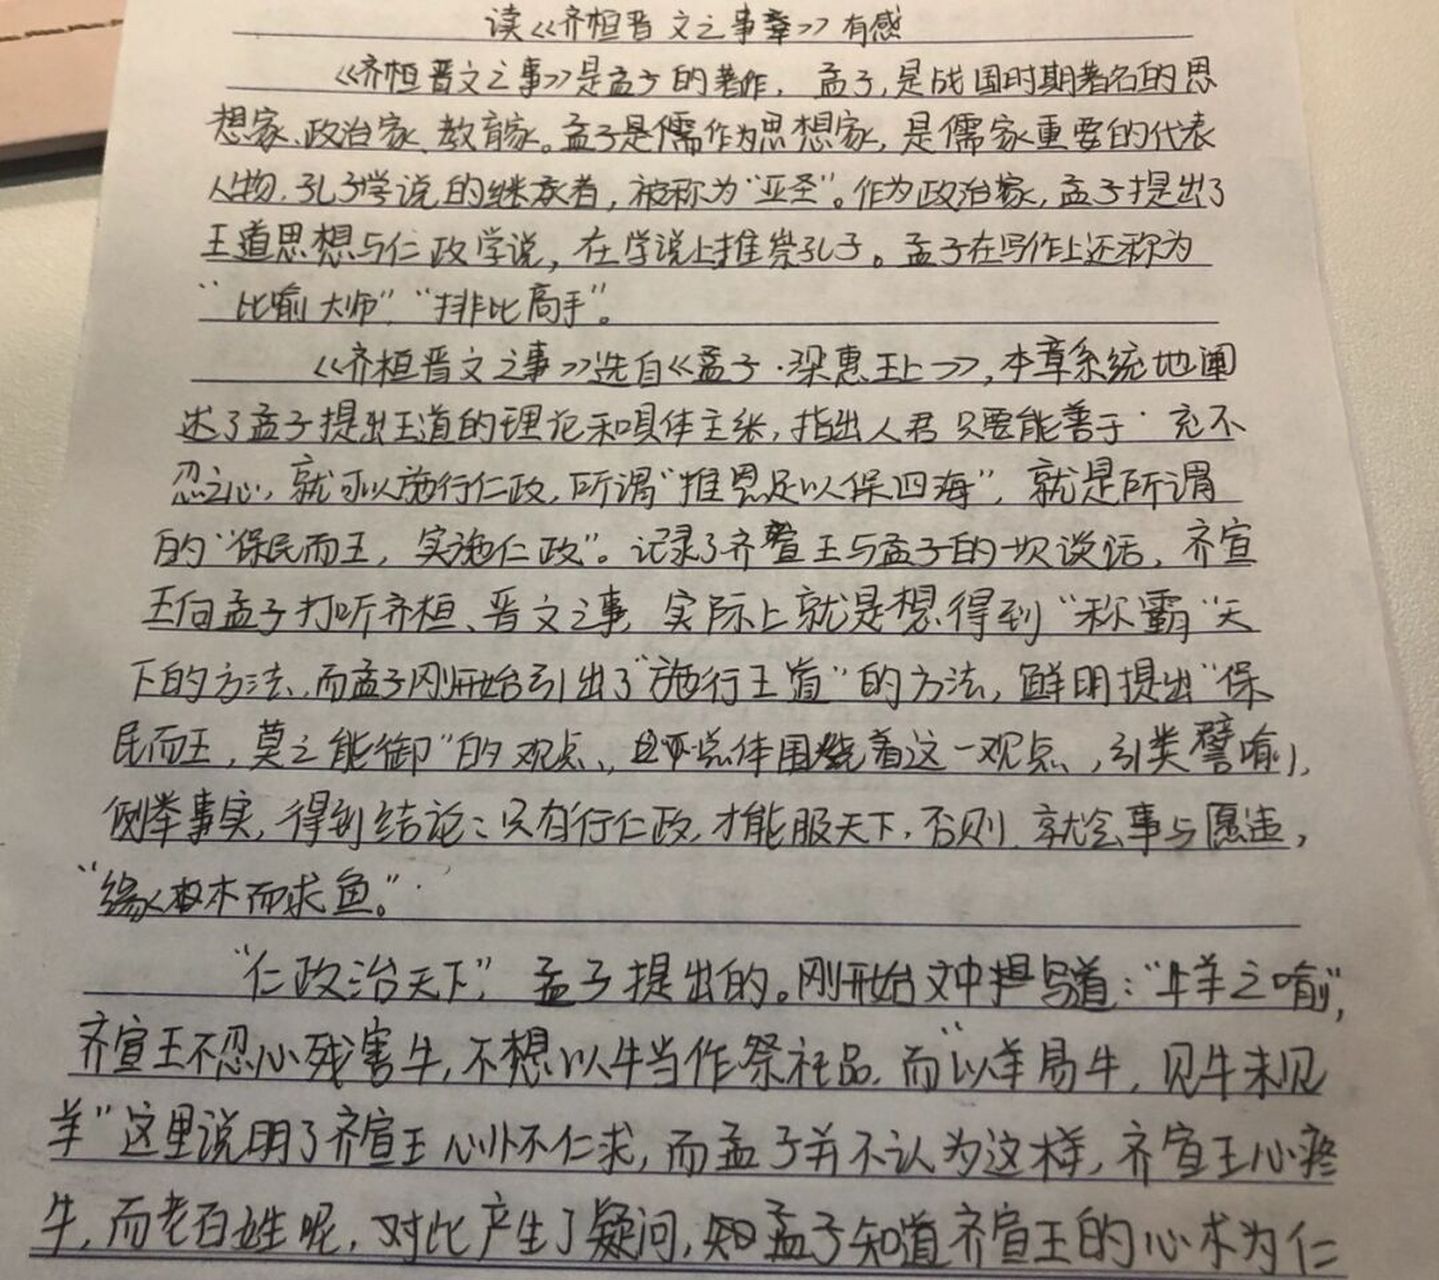 读《齐桓晋文之事章》有感
《齐桓晋文之事》是孟子的著作，孟子，是战国时期著名的思
想家、政治家、教育家。孟子是儒作为思想家，是儒家重要的代表
人物，孔子学说的继承者，被称为“亚圣”。作为政治家，孟子提出了
王道思想与仁政学说，在学说上推崇孔子。孟子在写作上还称为
“比喻大师”，“排比高手”。
《齐桓晋文之事》选自《孟子·梁惠王上》，本章系统地阐
述了孟子提出王道的理论和具体主张，指出人君只要能善于充不
忍之心，就可以施行仁政，所谓“推恩足以保四海”，就是所谓
的“保民而王，实施仁政”。记录了齐宣王与孟子的一次谈话，齐宣
王向孟子打听齐桓、晋文之事，实际上就是想得到“称霸“天
下的方法，而孟子刚开始引出了“施行王道”的方法，鲜明提出“保
民而王，莫之能御”的观点，总体围绕着这一观点，引类譬喻，
例举事实，得到结论：只有行仁政，才能服天下，否则，就会事与愿违，
“缘木而求鱼。”
“仁政治天下”，孟子提出的。刚开始文中写道：“牛羊之喻”，
齐宣王不忍心残害牛，不想以牛当作祭礼品，而“以羊易牛，见牛未见
羊”这里说明了齐宣王心怀不仁术，而孟子并不认为这样，齐宣王心疼
牛，而老百姓呢，对此产生了疑问，孟子知道齐宣王的心术为仁